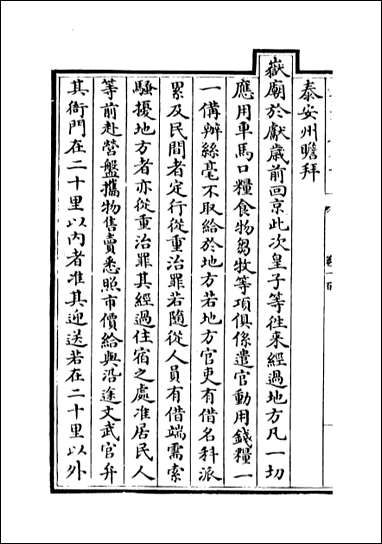 泰安州瞻拜
嶽廟於獻歲前回京此次皇子等往來經過地方凡一切
應用車馬口糧食物芻牧等項俱係遣官動用錢糧一
一備辦絲毫不取給於地方若地方官吏有借名科派
累及民間者定行從重治罪若隨從人員有借端需索
騷擾地方者亦從重治罪其經過住宿之處准居民人
等前赴營盤攜物售賣悉照市價給與沿途文武官弁
其衙門在二十里以內者准其迎送若在二十里以外